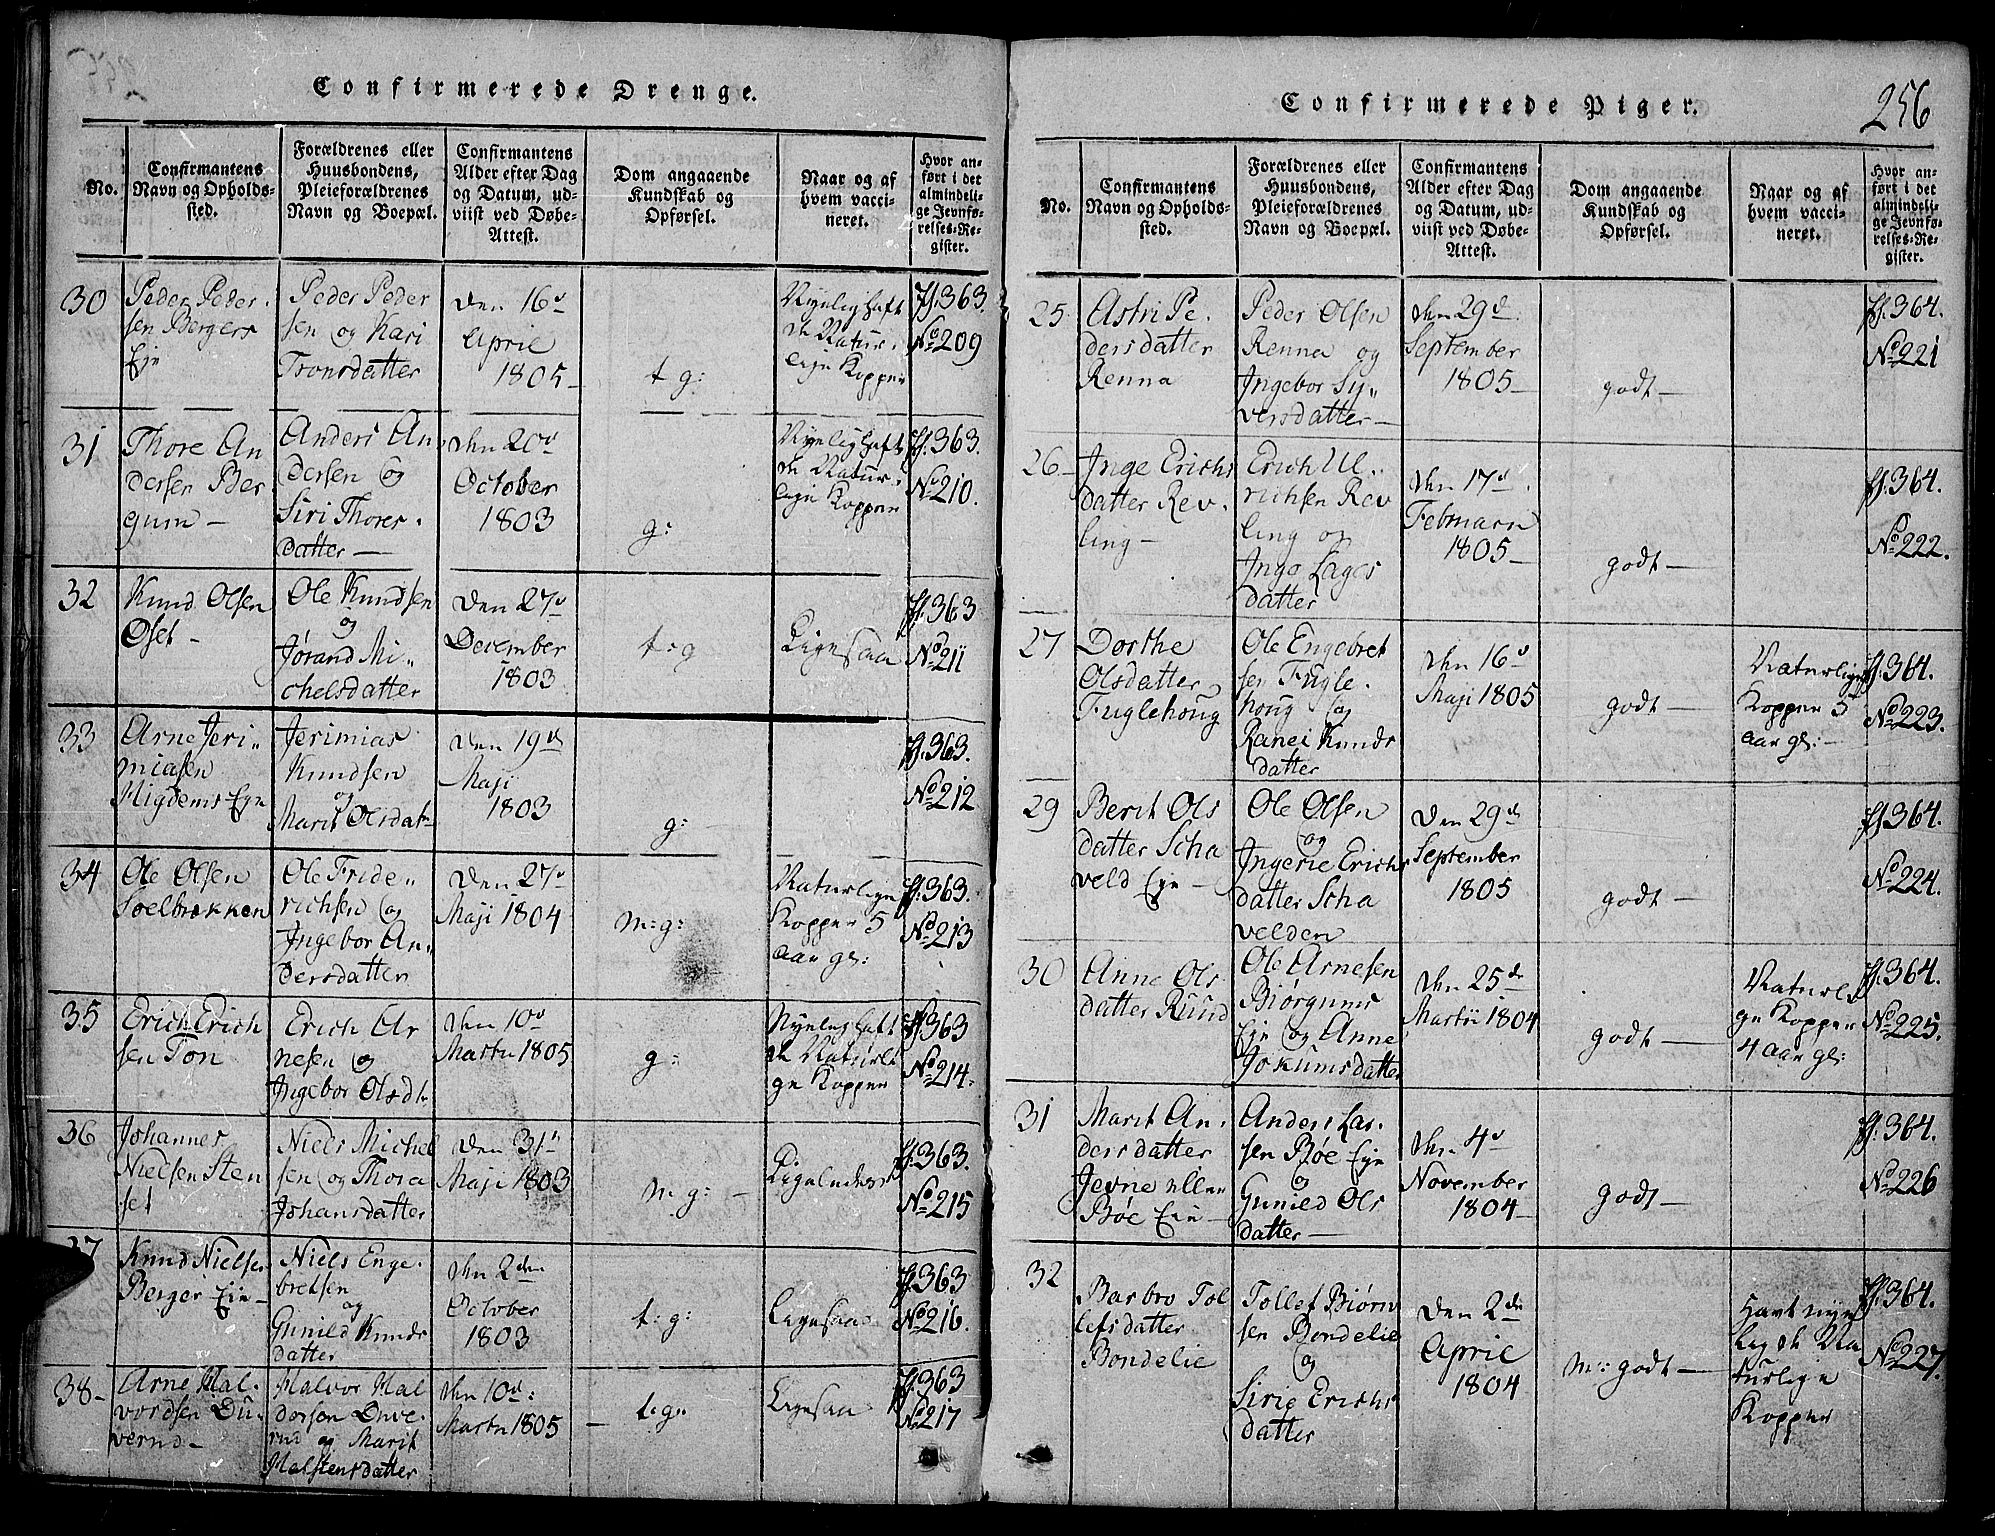 Confirmerede Drenge.
No.
Confirmantens
Navn og Opholds-
sted.
Forældrenes eller
Huusbondens,
Pleieforældrenes
Navn og Boepæl.
Confirmantens
Alder efter Dag
og Datum, ud-
viist ved Døbe-
Attest.
Dom angaaende
Kundskab og
Opførsel.
Naar og af
hvem vacci-
neret.
Hvor an-
ført i det
almindeli-
ge Jevnfø-
relses-Re-
gister.
30
Peder Peder-
sen Bergers
Eje
Peder Peder
sen og Kari
Tronsdatter
den 16d
April
1805-
t g:
Nyelig haft
de Natur-
lige Kopper
ff. 363.
No 209
31
Thore An
dersen Ber
gum-
Anders An
dersen og
Siri Thores-
datter-
den 20d
October
1803
g:
Nyelig haft
de Natur-
lige Kopper
ff. 363.
No 210.
32
Knud Olsen
Øset-
Ole Knudsen
og
Jørand Mi-
chelsdatter
den 27d
December
1803
t:g
Ligesaa
ff. 363
No 211
33
Arne Jeri-
miasen
Migdems Eje
Jerimias
Knudsen
og
Marit Olsdat-
den 19d
Maji
1803
g:
ff. 363.
No 212
34
Ole Olsen
Soelbrækken
Ole Fride-
richsen og
Ingebor An-
dersdatter
den 27d
Maji 1804
m:g:
Naturlige
Kopper 5
aar gl:
ff. 363.
No 213
35
Erich Erich
sen Ton
Erich Ar
nesen og
Ingebor Olsdt-
den 10d
Martii 1805
g:
Nyelig haft
de Naturli
ge Kopper
ff. 363
No 214.
36
Johannes
Nielsen Sten
set
Niels Michel
sen og Thora
Johansdatter
den 31te
Maji 1803
m:g:-
Ligeledes
ff. 363.
No 215
37
Knud Nielsen
Berger Eie-
Niels Enge-
bretsen
og
Gunild Knuds
datter
den 2den
October
1803
t:g:
Ligesaa
ff. 363
No 216.
38-
Arne Hal-
vordsen Du-
verud-
Halvor Hal
dorsen Duve-
rud og Marit
Halstensdatter
den 10d:
Martii 1805
t:g:
Ligesaa
ff. 363
No 217
Confirmerede Piger.
256
No.
Confirmantens
Navn og Opholds-
sted.
Forældrenes eller
Huusbondens,
Pleieforældrenes
Navn og Boepæl.
Confirmantens
Alder efter Dag
og Datum, ud-
viist ved Døbe-
Attest.
Dom angaaende
Kundskab og
Opførsel.
Naar og af
hvem vacci-
neret.
Hvor an-
ført i det
almindeli-
ge Jevnfø-
relses-Re-
gister.
25
Astri Pe-
dersdatter
Renna
Peder Olsen
Renna og
Ingebor Sy-
versdatter-
den 29d
September
1805-
godt-
ff. 364.
No 221
26-
Inge Erichs
datter Rev-
ling-
Erich Ul-
richsen Rev
ling og
Inga Lages
datter
den 17d
Februarii
1805-
godt-
ff. 364.
No 222.
27
Dorthe
Olsdatter
Fuglehoug
Ole Engebret
sen Fugle-
houg og
Ranei Knuds
datter
den 16d
Maji 1805
godt-
Naturlige
Kopper 5
aar gl:-
ff. 364.
No 223.
29
Berit Ols
datter Scha
veld Eje-
Ole Olsen
og
Ingerie Erichs
datter Scha
velden
den 29d
September
1805
godt-
ff. 364.
No 224.
30
Anne Ols
datter Rund
Ole Arnesen
Biørgums
Eje og Anne
Jokumsdatter
den 25de
Martii 1804
godt-
Naturli
ge Kopper
4 aar gl:
ff. 364.
No 225.
31
Marit An-
dersdatter
Jevne eller
Bøe Eie-
Anders Lar-
sen Bøe Eje
og
Gunild Ols
datter-
den 4d
November
1804-
godt-
ff. 364.
No 226
32
Barbro Tol
lefsdatter
Bondelie
Tollef Biørn
sen Bondelie
og
Sirie Erichs
datter
den 2de
April
1804
m: godt-
Havt nye
lig de Na
turlige
Kopper
ff. 364.
No 227.